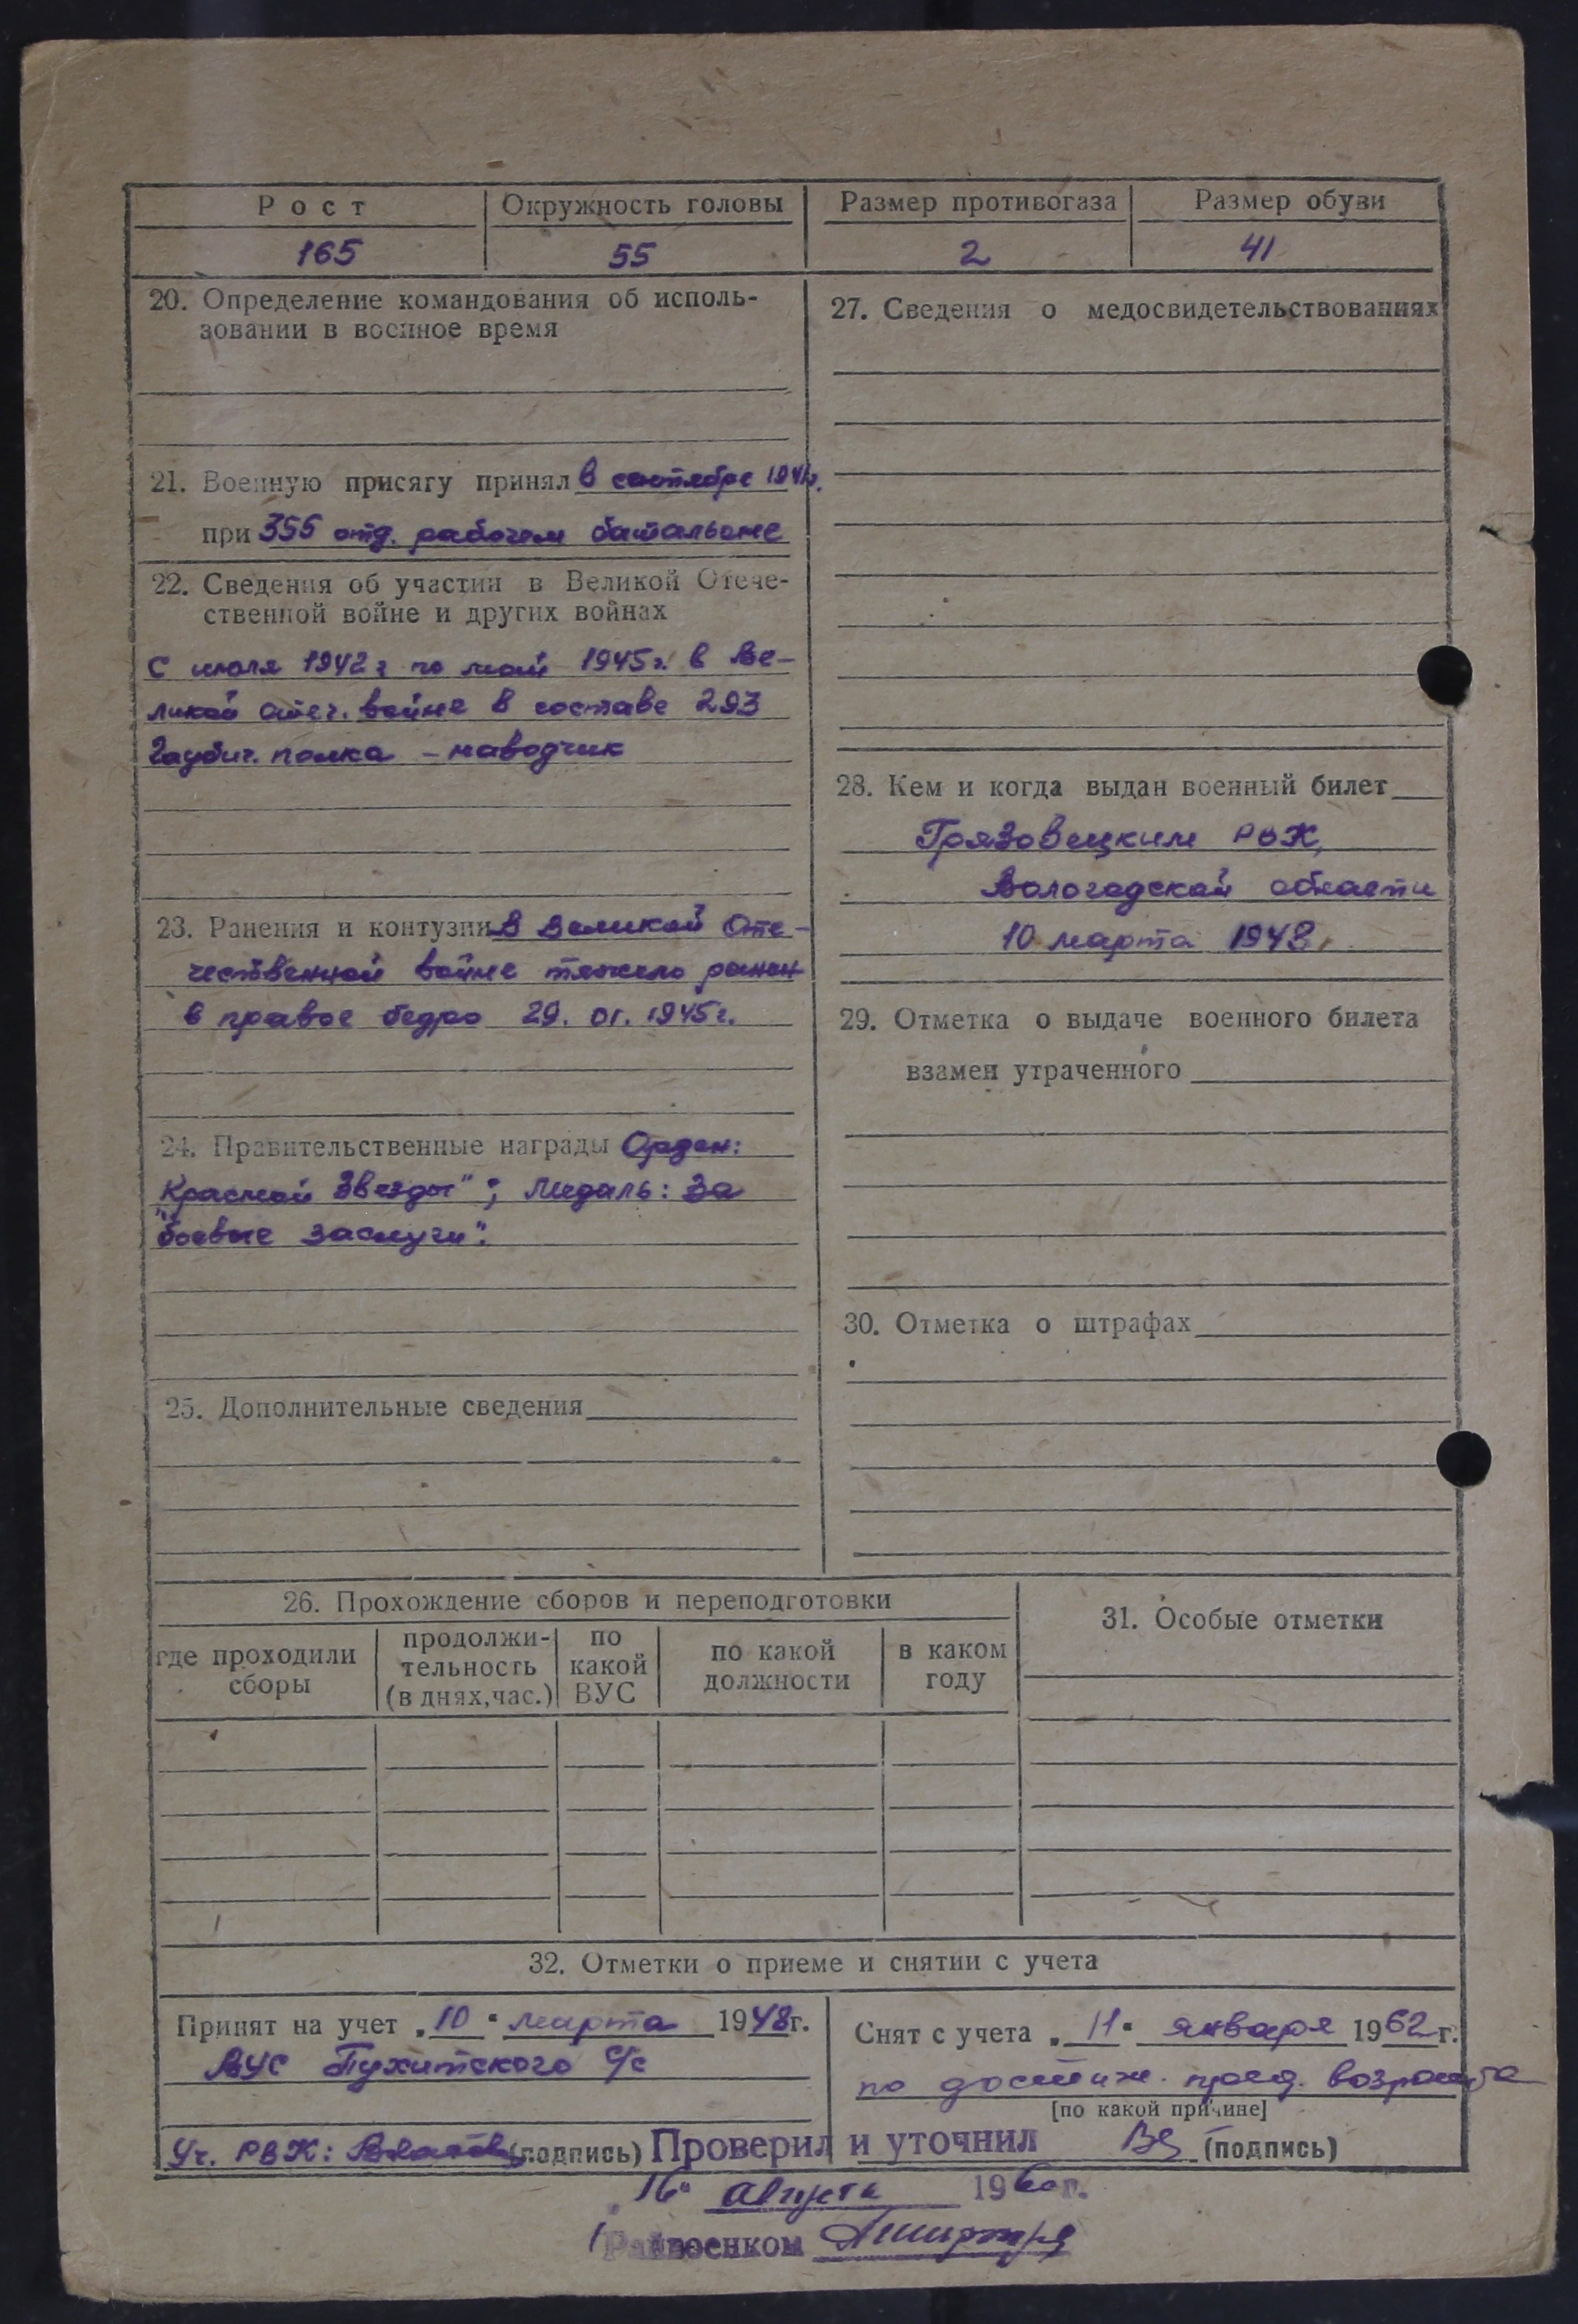 Рост Окружность головы Размер противогаза Размер обуви
165 55 2 41
20. Определение командования об исполь-
зовании в военное время
21. Военную присягу принял в сентябре 194 г.
при 355 отд. рабочем батальоне
22. Сведения об участии в Великой Отече-
ственной войне и других войнах
С июля 1942 г по май 1945 г. в Ве-
ликой отеч. войне в составе 293
Гаубич. полка - наводчик
23. Ранения и контузии В Великой Оте-
чественной войне тяжело ранен
в правое бедро 29. 01. 1945 г.
24. Правительственные награды Орден:
Красной Звезды"; Медаль: За
"боевые заслуги".
25. Дополнительные сведения
27. Сведения о медосвидетельствованиях
28. Кем и когда выдан военный билет
Грязовецким РВК,
Вологодской области
10 марта 1948.
29. Отметка о выдаче военного билета
взамен утраченного
30. Отметка о штрафах
26. Прохождение сборов и переподготовки
где проходили сборы
продолжи-
тельность
(в днях, час.)
по
какой
ВУС
по какой
должности
в каком
году
31. Особые отметки
32. Отметки о приеме и снятии с учета
Принят на учет „10" марта 1948 г.
ВУС Пухитского С/с
Уч. РВК: (подпись)
Снят с учета „11" января 1962 г.
по достиж. пред. возраста
[по какой причине]
(подпись)
Проверил и уточнил
„16" августа 1960 г.
Райвоенком